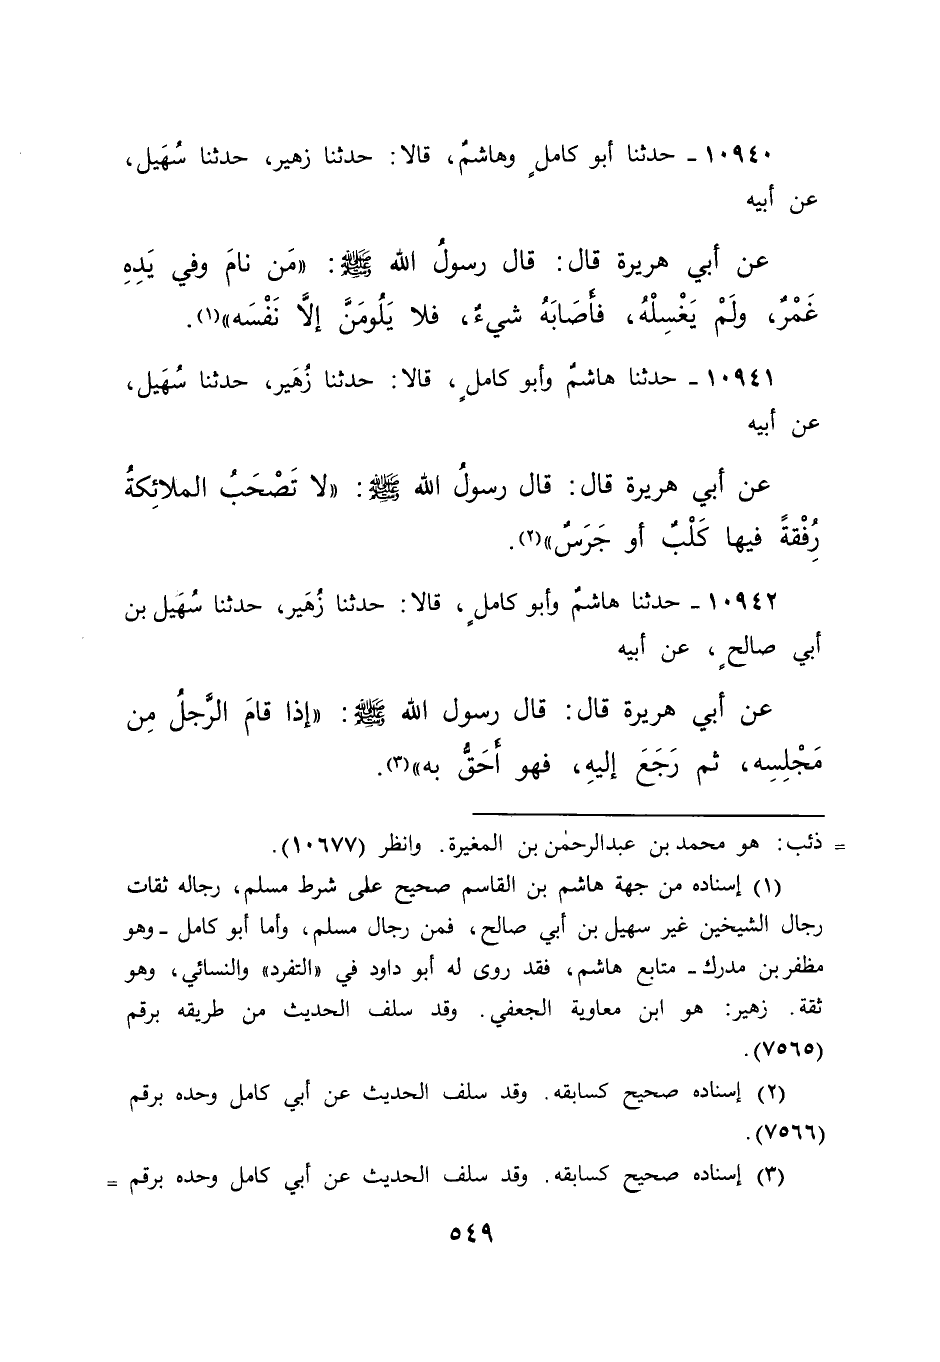 ١٠٩٤٠ ـ حدثنا أبو كاملٍ وهاشمٌ، قالا: حدثنا زهير، حدثنا سُهَيل،
عن أبيه
عن أبي هريرة قال: قال رسولُ الله ﷺ: «مَن نامَ وفي يَدِهِ
غَمْرٌ، ولَمْ يَغْسِلْهُ، فأَصَابَهُ شيءٌ، فلا يَلُومَنَّ إلَّا نَفْسَه»(١).
١٠٩٤١ ـ حدثنا هاشمٌ وأبو كاملٍ، قالا: حدثنا زُهَير، حدثنا سُهَيل،
عن أبيه
عن أبي هريرة قال: قال رسولُ الله ﷺ: «لا تَصْحَبُ الملائِكةُ
رِفُْقةً فيها كَلْبٌ أو جَرَسٌ»(٢).
١٠٩٤٢ ـ حدثنا هاشمٌ وأبو كاملٍ، قالا: حدثنا زُهَير، حدثنا سُهَيل بن
أبي صالحٍ، عن أبيه
عن أبي هريرة قال: قال رسول الله ﷺ: «إذا قامَ الرَّجلُ مِن
مَجْلِسِه، ثم رَجَعَ إليهِ، فهو أَحَقُّ به»(٣).
= ذئب: هو محمد بن عبدالرحمٰن بن المغيرة. وانظر (١٠٦٧٧).
(١) إسناده من جهة هاشم بن القاسم صحيح على شرط مسلم، رجاله ثقات
رجال الشيخين غير سهيل بن أبي صالح، فمن رجال مسلم، وأما أبو كامل ـ وهو
مظفر بن مدرك ـ متابع هاشم، فقد روى له أبو داود في «التفرد» والنسائي، وهو
ثقة. زهير: هو ابن معاوية الجعفي. وقد سلف الحديث من طريقه برقم
(٧٥٦٥).
(٢) إسناده صحيح كسابقه. وقد سلف الحديث عن أبي كامل وحده برقم
(٧٥٦٦).
(٣) إسناده صحيح كسابقه. وقد سلف الحديث عن أبي كامل وحده برقم =
٥٤٩